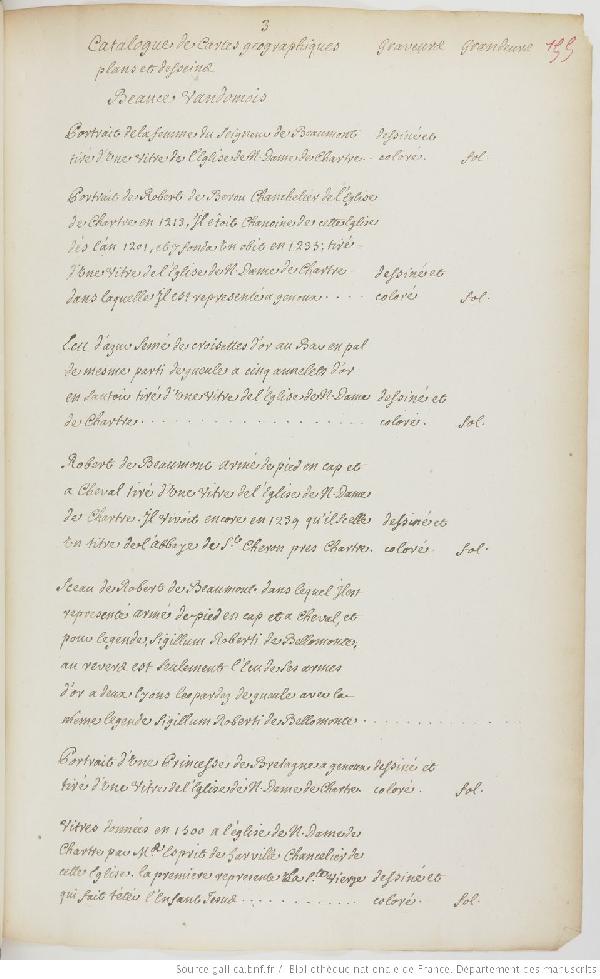 3
Catalogue de Cartes geographiques graveure Grandeure 155
plans et desseins
Beauce Vandomois
Portrait de la femme du Seigneur de Beaumont dessiné et
tiré d'Une Vitre de l'Eglise de N. Dame de Chartre. coloré. fol.
Portrait de Robert de Berou Chancelier de l'Eglise
de Chartre en 1213, Il étoit Chanoine de cette Eglise
dès l'an 1201, et y fonda Un obit en 1233; tiré
d'Une Vitre de l'Eglise de N. Dame de Chartre dessiné et
dans laquelle Il est representé a genoux .... coloré fol.
Ecu d'azur Semé de croisettes d'or au Bar en pal
de mesme parti de gueule a cinq annelets d'or
en Sautoir tiré d'Une Vitre de l'Eglise de N. Dame dessiné et
de Chartre .................... coloré. fol.
Robert de Beaumont armé de pied en cap et
a Cheval tiré d'Une Vitre de l'Eglise de N. Dame
de Chartre. Il vivoit encore en 1239 qu'il Scelle dessiné et
Un titre de l'abbaye de St. Cheron pres Chartre. coloré. fol.
Sceau de Robert de Beaumont dans lequel Il est
representé armé de pied en cap et a Cheval, et
pour legende, Sigillum Roberti de Bellomonte,
au revers est Seulement l'Ecu de Ses armes
d'or a deux Lyons leopardez de gueule avec la
même legende Sigillum Roberti de Bellomonte ..........
Portrait d'Une Princesse de Bretagne a genoux dessiné et
tiré d'Une Vitre de l'Eglise de N. Dame de Chartre coloré. fol.
Vitres données en 1500 a l'église de N. Dame de
Chartre par Mr. Esprit de harville Chancelier de
cette Eglise. la premiere represente La Ste. Vierge dessiné et
qui fait tétée l'Enfant Jesus ........... coloré. fol.
Source gallica.bnf.fr / Bibliothèque nationale de France. Département des manuscrits